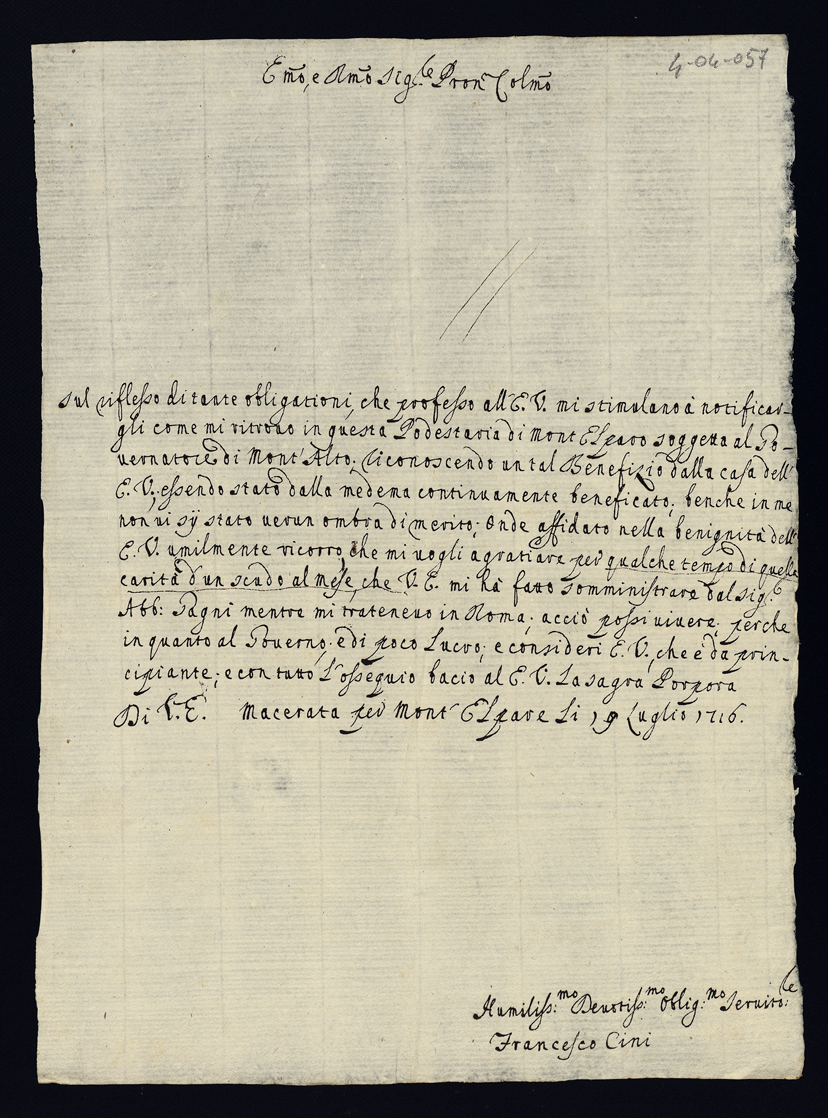 4-04-057
Em̃o, e Rm̃o Sig.re Pron Colm̃o
Sul riflesso di tante obligationi, che professo all'E. V. mi stimulano à notificar-
gli come mi ritrovo in questa Podestaria di Mont'Elparo soggetta al Go-
vernatore di Mont'Alto; riconoscendo un tal Benefizio dalla casa dell'
E. V., essendo stato dalla medema continuamente beneficato; benche in me
non vi sij stato verun ombra di merito; Onde affidato nella benignità dell'
E. V. umilmente ricorro, che mi vogli agratiare per qualche tempo di quella
carità d'un scudo al mese, che V. E. mi hà fatto somministrare dal Sig.e
Abb: Pagni mentre mi trattenevo in Roma; acciò possi vivere, perche
in quanto al Governo, è di poco Lucro; e consideri E. V., che è da prin-
cipiante; e con tutto L'ossequio bacio al E. V. La sagra Porpora
Di V. E. Macerata per Mont'Elpare Li 19 Luglio 1716.
Humiliss:mo Devotiss:mo Oblig:mo Servito:re
Francesco Cini